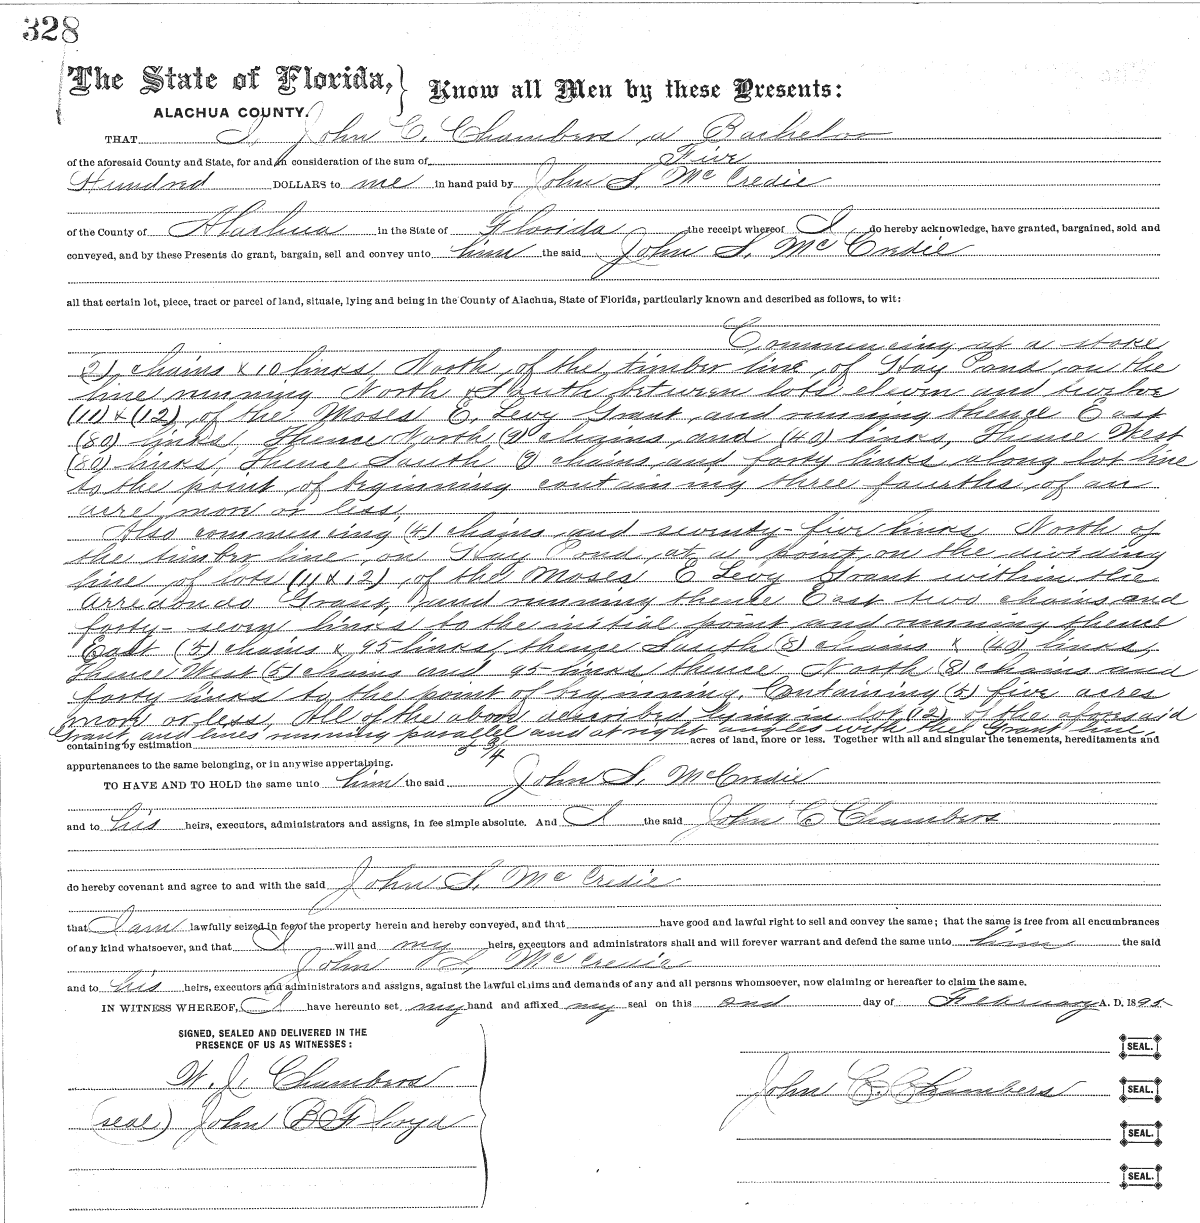 328
The State of Florida, } Know all Men by these Presents:
ALACHUA COUNTY.
THAT I, John C. Chambers, a Bachelor
of the aforesaid County and State, for and in consideration of the sum of Five
Hundred DOLLARS to me in hand paid by John S. McCredie
of the County of Alachua in the State of Florida the receipt whereof I do hereby acknowledge, have granted, bargained, sold and
conveyed, and by these Presents do grant, bargain, sell and convey unto him the said John S. McCredie
all that certain lot, piece, tract or parcel of land, situate, lying and being in the County of Alachua, State of Florida, particularly known and described as follows, to wit:
Commencing at a stake
(2) chains & 10 links, North of the timber line, of Hay Pond, on the
line running North & South between lots eleven and twelve
(11) & (12), of the Moses E. Levy Grant, and running thence East
(80) links, Thence North (9) chains, and (40) links, Thence West
(80) links, Thence South (9) chains, and forty links, along lot line
to the point of beginning containing three fourths, of an
acre, more or less,
Also commencing (4) chains and seventy-five links, North of
the timber line, on Hay Pond, at a point, on the dividing
line of lots (11 & 12), of the Moses E Levy Grant within the
Arredondo Grant, and running thence East two chains, and
forty-seven links to the initial point and running thence
East (5) chains & 95 links, thence South (8) chains & (40) links,
Thence West (5) chains and 95-links thence North (8) chains and
forty links to the point of beginning, Containing (5) five acres
more or less, All of the above described lying in lot (12) of the aforesaid
Grant, and lines running parallel and at right angles with the Grant line,
containing by estimation 5 3/4 acres of land, more or less. Together with all and singular the tenements, hereditaments and
appurtenances to the same belonging, or in anywise appertaining.
TO HAVE AND TO HOLD the same unto him the said John S. McCredie
and to his heirs, executors, administrators and assigns, in fee simple absolute. And I the said John C Chambers
do hereby covenant and agree to and with the said John S. McCredie
that I am lawfully seized in fee of the property herein and hereby conveyed, and that have good and lawful right to sell and convey the same; that the same is free from all encumbrances
of any kind whatsoever, and that I will and my heirs, executors and administrators shall and will forever warrant and defend the same unto him the said
John S. McCredie
and to his heirs, executors and administrators and assigns, against the lawful claims and demands of any and all persons whomsoever, now claiming or hereafter to claim the same.
IN WITNESS WHEREOF, I have hereunto set my hand and affixed my seal on this 2nd day of February A. D. 1895
SIGNED, SEALED AND DELIVERED IN THE
PRESENCE OF US AS WITNESSES:
SEAL.
W. J. Chambers
John C. Chambers SEAL.
(seal) John B Floyd
SEAL.
SEAL.